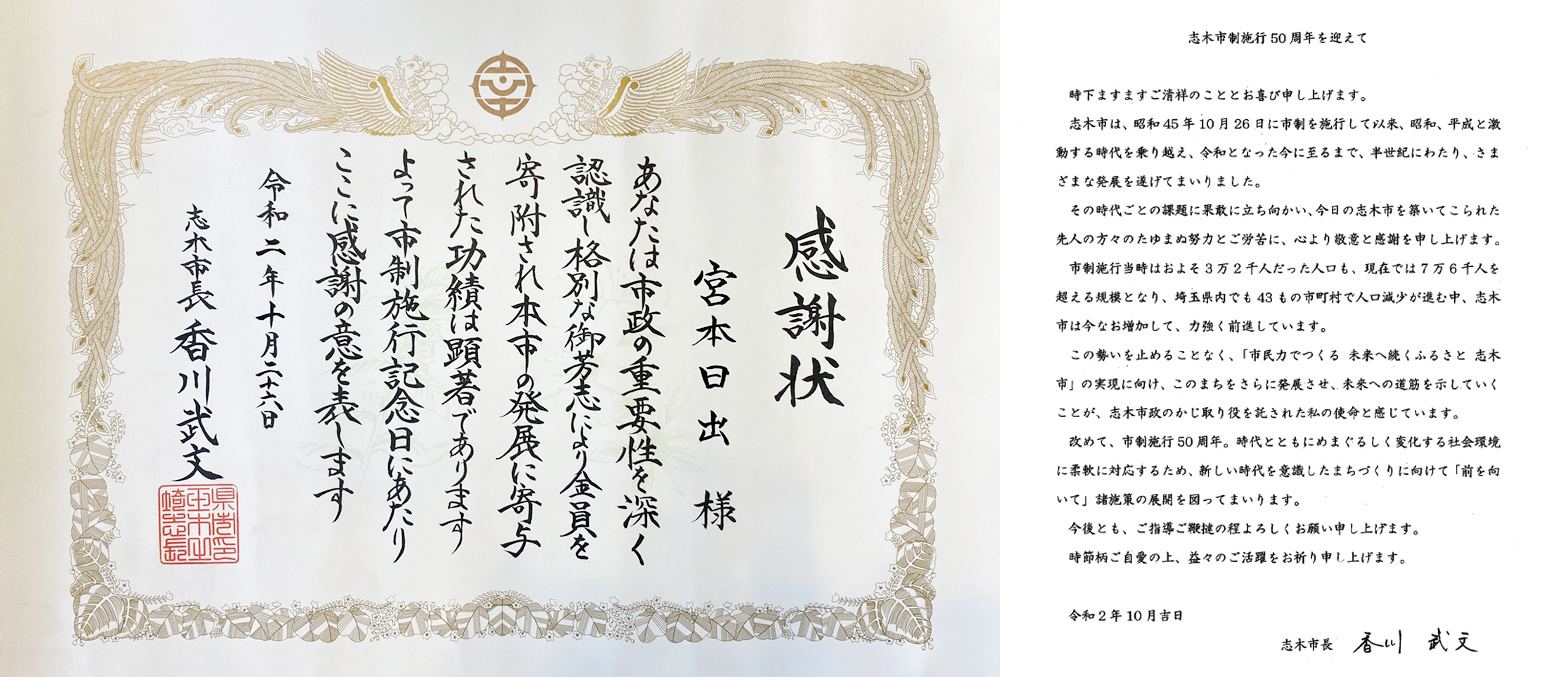 感謝状
宮本日出 様
あなたは市政の重要性を深く
認識し格別な御芳志により金員を
寄附され本市の発展に寄与
された功績は顕著であります
よって市制施行記念日にあたり
ここに感謝の意を表します
令和二年十月二十六日
志木市長 香川武文
志木市制施行50周年を迎えて
時下ますますご清祥のこととお喜び申し上げます。
志木市は、昭和45年10月26日に市制を施行して以来、昭和、平成と激
動する時代を乗り越え、令和となった今に至るまで、半世紀にわたり、さま
ざまな発展を遂げてまいりました。
その時代ごとの課題に果敢に立ち向かい、今日の志木市を築いてこられた
先人の方々のたゆまぬ努力とご労苦に、心より敬意と感謝を申し上げます。
市制施行当時はおよそ3万2千人だった人口も、現在では7万6千人を
超える規模となり、埼玉県内でも43もの市町村で人口減少が進む中、志木
市は今なお増加して、力強く前進しています。
この勢いを止めることなく、「市民力でつくる 未来へ続くふるさと 志木
市」の実現に向け、このまちをさらに発展させ、未来への道筋を示していく
ことが、志木市政のかじ取り役を託された私の使命と感じています。
改めて、市制施行50周年。時代とともにめまぐるしく変化する社会環境
に柔軟に対応するため、新しい時代を意識したまちづくりに向けて「前を向
いて」諸施策の展開を図ってまいります。
今後とも、ご指導ご鞭撻の程よろしくお願い申し上げます。
時節柄ご自愛の上、益々のご活躍をお祈り申し上げます。
令和2年10月吉日
志木市長 香川 武文